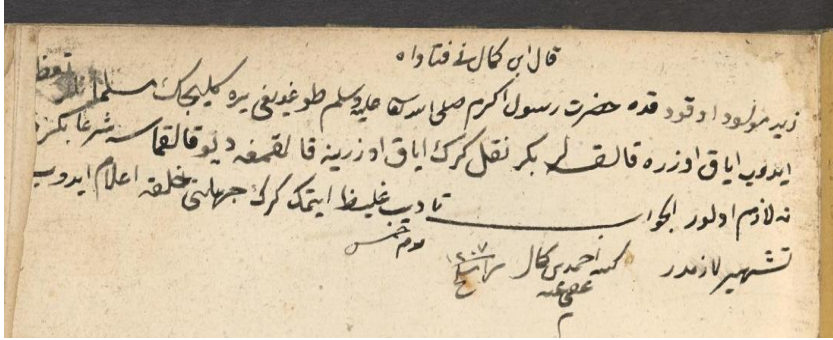 قال ابن كمال فى فتاواه
زيد مولود اوقودقده حضرت رسول اكرم صلى الله تعا عليه وسلم طوغديغى يره كلينجك مسلمانلر تعظ
ايدوب اياق اوزره قالقسه‌لر بكر نقل كرك اياق اوزرينه قالقمغه ديو قالقماسه شرعا بكره
نه لازم اولور الجواب تاديب غليظ ايتمك كرك جهلنى خلقه اعلام ايدوب
تشهير لازمدر كتبه احمد بن كمال عفى عنه
١٢٠٧